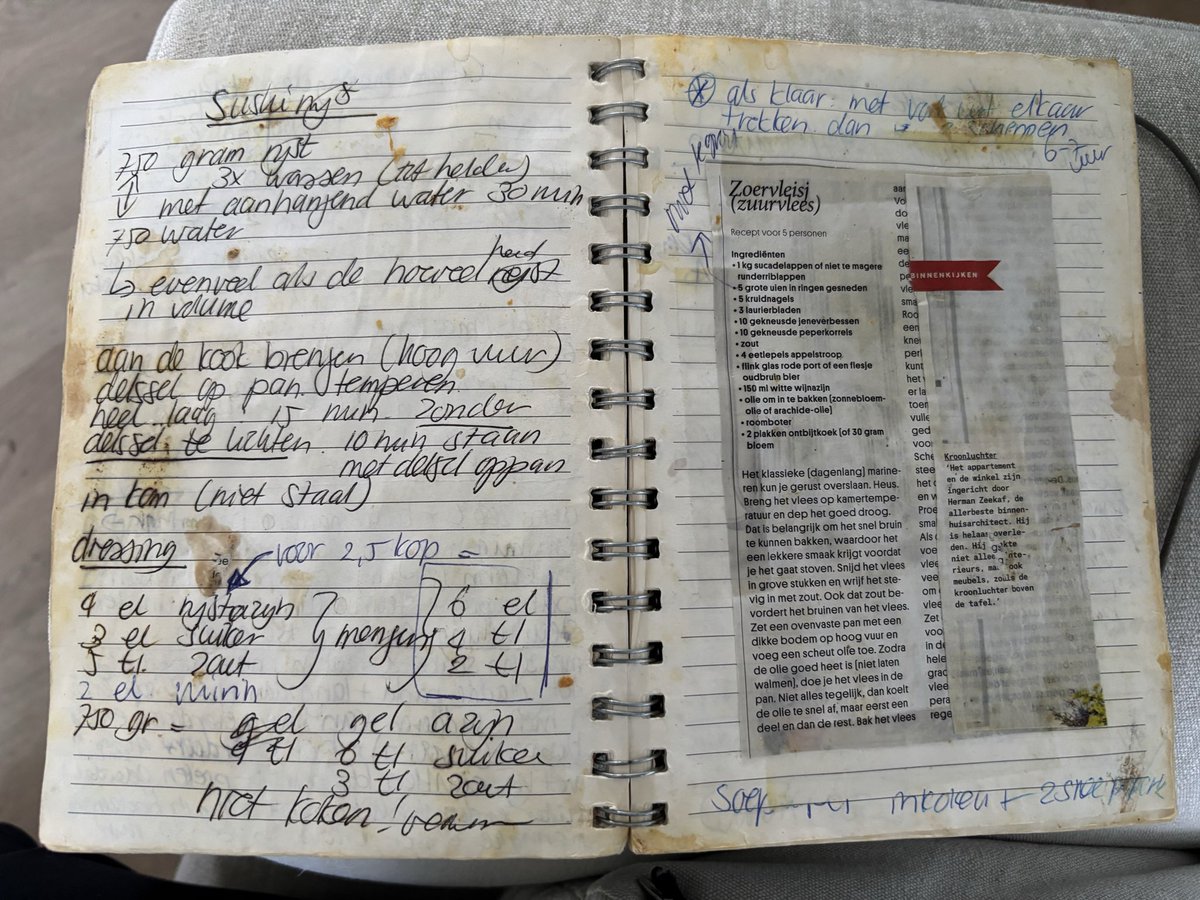 Sushirijst
750 gram rijst
3x wassen (tot helder)
met aanhangend water 30 min
750 water
↳ evenveel als de hoeveelheid rijst
in volume
aan de kook brengen (hoog vuur)
deksel op pan temperen
heel laag 15 min zonder
deksel te lichten 10 min staan
met deksel op pan
in kom (niet staal)
dressing
voor 2,5 kop =
4 el rijstazijn } mengen 6 el
3 el suiker 4 tl
5 tl. zout 2 tl
2 el mirin
750 gr = gel azijn
6 tl suiker
3 tl zout
niet koken!
als klaar met vork uit elkaar
trekken dan
6-7 uur
Zoervleisj
(zuurvlees)
Recept voor 5 personen
Ingrediënten
• 1 kg sucadelappen of niet te magere
runderriblappen
• 5 grote uien in ringen gesneden
• 5 kruidnagels
• 3 laurierbladen
• 10 gekneusde jeneverbessen
• 10 gekneusde peperkorrels
• zout
• 4 eetlepels appelstroop
• flink glas rode port of een flesje
oudbruin bier
• 150 ml witte wijnazijn
• olie om in te bakken (zonnebloem-
olie of arachide-olie)
• roomboter
• 2 plakken ontbijtkoek (of 30 gram
bloem
Het klassieke (dagenlang) marine-
ren kun je gerust overslaan. Heus.
Breng het vlees op kamertempe-
ratuur en dep het goed droog.
Dat is belangrijk om het snel bruin
te kunnen bakken, waardoor het
een lekkere smaak krijgt voordat
je het gaat stoven. Snijd het vlees
in grove stukken en wrijf het ste-
vig in met zout. Ook dat zout be-
vordert het bruinen van het vlees.
Zet een ovenvaste pan met een
dikke bodem op hoog vuur en
voeg een scheut olie toe. Zodra
de olie goed heet is (niet laten
walmen), doe je het vlees in de
pan. Niet alles tegelijk, dan koelt
de olie te snel af, maar eerst een
deel en dan de rest. Bak het vlees
BINNENKIJKEN
Kroonluchter
'Het appartement
en de winkel zijn
ingericht door
Herman Zeekaf, de
allerbeste binnen-
huisarchitect. Hij
is helaas overle-
den. Hij
niet
rieurs, ook
meubels, zoals de
kroonluchter boven
de tafel.'
Soep inkoken +